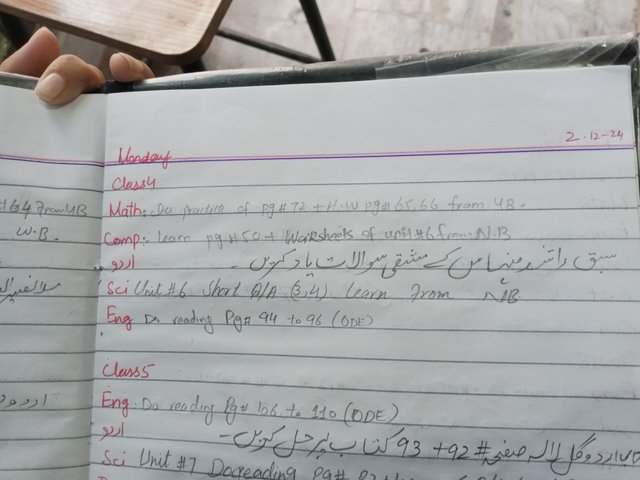 2-12-24
Monday
Class 4
Math: Do practice of pg# 72 + H.W pg# 65,66 from UB.
Comp: Learn pg# 50 + Worksheets of unit #6 from N.B
اردو سبق کے مشقی سوالات یاد کریں۔
Sci Unit #6 Short Q/A (3,4) Learn From NB
Eng Do reading Pg# 94 to 96 (ODE)
Class 5
Eng. Do reading Pg# 106 to 110 (ODE)
اردو
اردو گل لالہ صفحہ # 92 + 93 کتاب پر حل کریں۔
Sci Unit #7 Do reading Pg#
164 From UB
W.B.
اردو